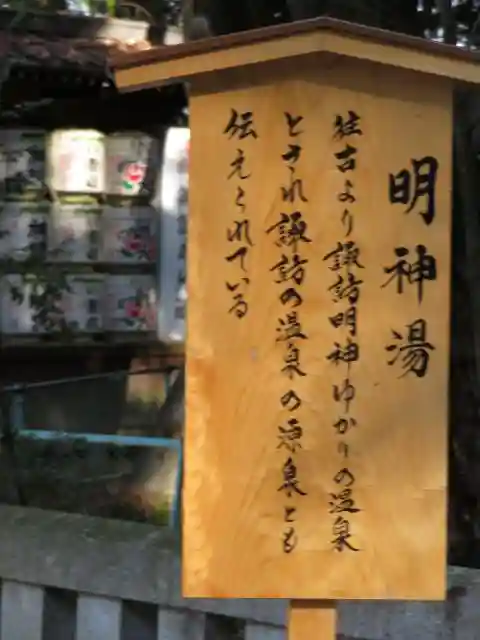 明神湯
往古より諏訪明神ゆかりの温泉
とされ諏訪の温泉の源泉とも
伝えられている